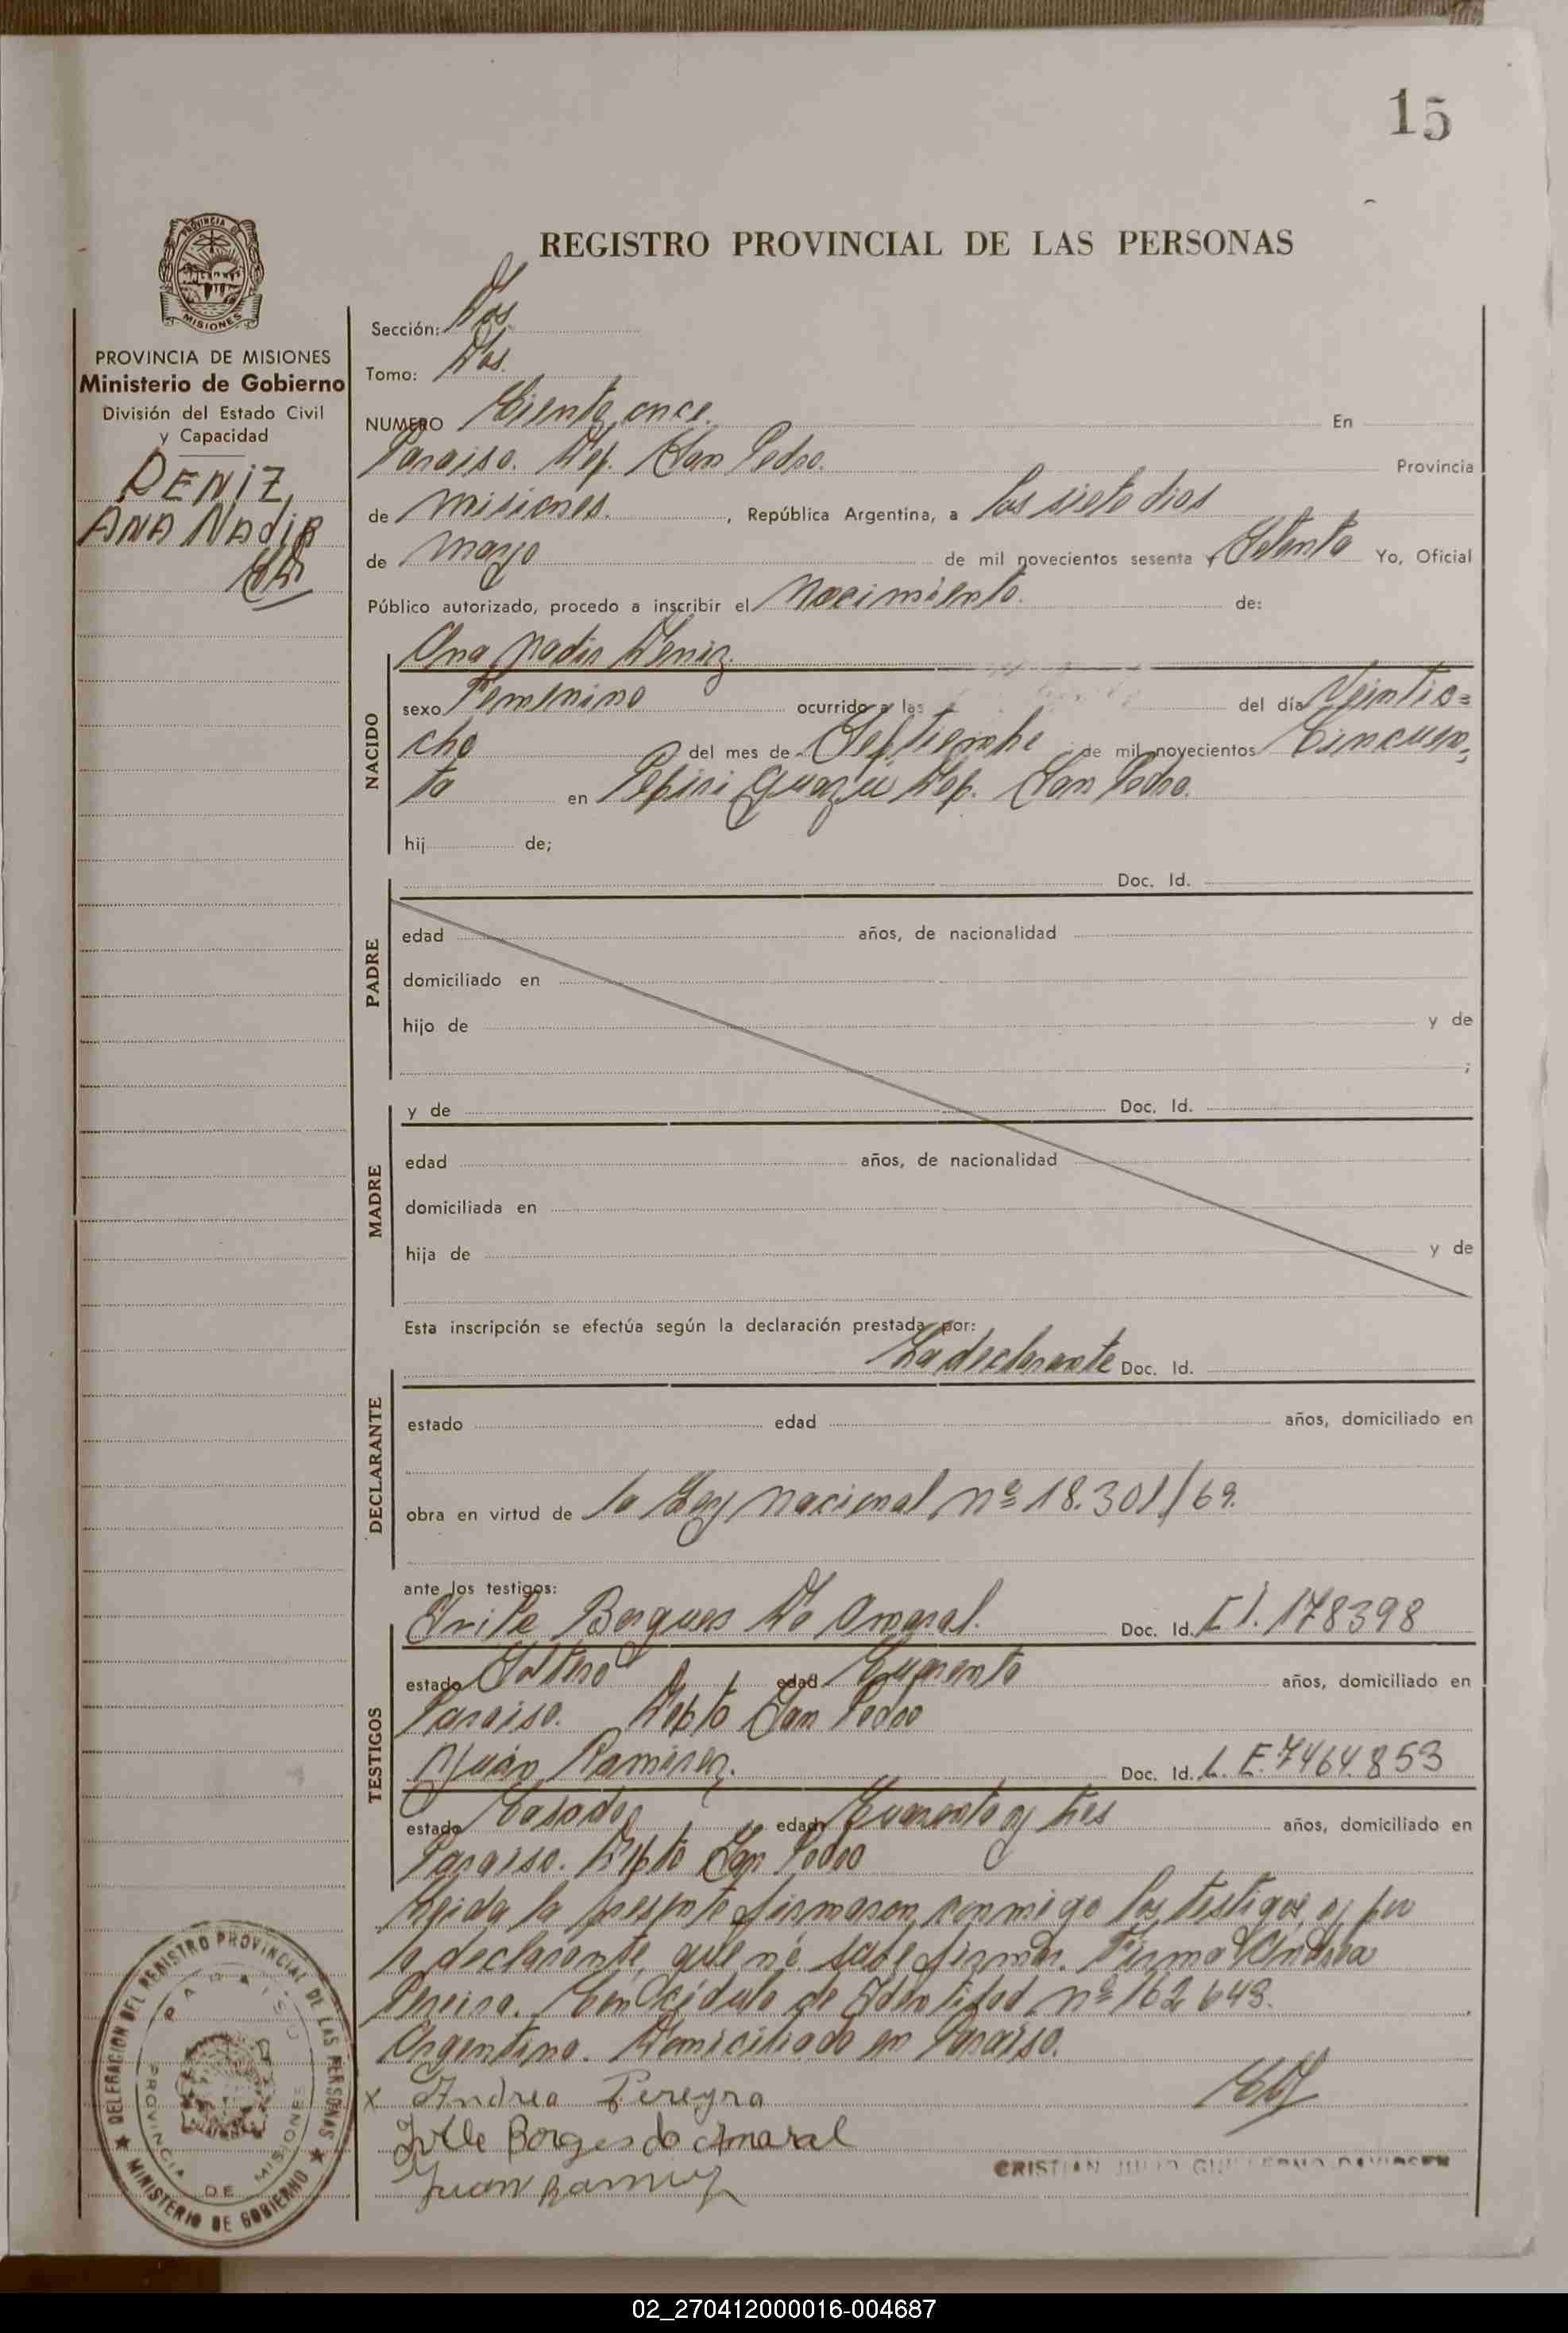 15
REGISTRO PROVINCIAL DE LAS PERSONAS
PROVINCIA DE MISIONES
MISIONES
PROVINCIA DE MISIONES
Ministerio de Gobierno
División del Estado Civil
y Capacidad
DENIZ,
ANA NAdiR
Sección: Dos.
Tomo: Dos.
NUMERO Ciento once. En
Paraiso. Dep. San Pedro. Provincia
de misiones. , República Argentina, a los siete dias
de mayo de mil novecientos sesenta y Setenta Yo, Oficial
Público autorizado, procedo a inscribir el nacimiento. de:
NACIDO
Ana Nadir Deniz.
sexo Femenino ocurrido a las del día Veintio=
cho del mes de Septiembre de mil novecientos Cincuen,
ta en Pepiri Guazu Dep. San Pedro.
hij de;
PADRE
Doc. Id.
edad años, de nacionalidad
domiciliado en
hijo de y de
;
MADRE
y de Doc. Id.
edad años, de nacionalidad
domiciliada en
hija de y de
Esta inscripción se efectúa según la declaración prestada por:
DECLARANTE
La declarante Doc. Id.
estado edad años, domiciliado en
obra en virtud de la Ley Nacional nº 18.301/69.
ante los testigos:
TESTIGOS
Borgues Do Amaral. Doc. Id. C I. 178398
estado Soltero edad Cuarenta años, domiciliado en
Paraiso. Depto San Pedro
Juán Ramirez. Doc. Id. L. E. 7464.853
estado Casado edad Cuarenta y tres años, domiciliado en
Paraiso. Depto San Pedro
Leida la presente firmaron conmigo los testigos y por
la declarante que nó sabe firmar. Firma Andrea
Pereira. Con Cédula de Identidad nº 162 643.
Argentina. Domiciliado en Paraiso.
x Andrea Pereyra
Borges do Amaral
Juan Ramirez
CRISTIAN JULIO GUILLERMO DAVIDSEN
DELEGACION DEL REGISTRO PROVINCIAL DE LAS PERSONAS
PARAISO
PROVINCIA DE MISIONES
MINISTERIO DE GOBIERNO
02_270412000016-004687